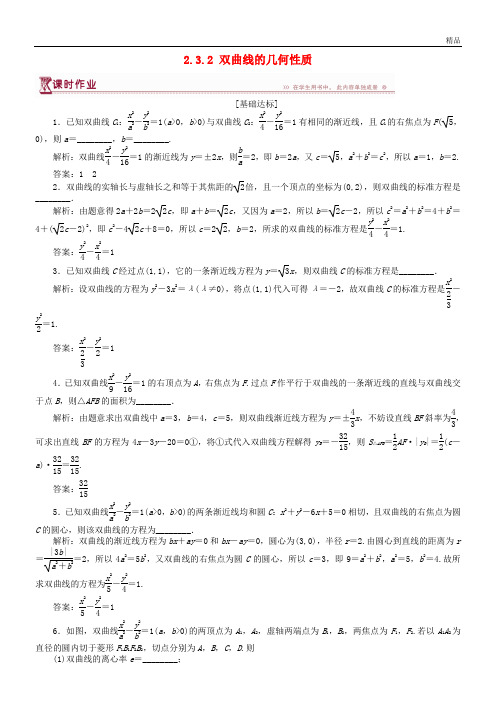 精品
2.3.2 双曲线的几何性质
课时作业
[基础达标]
1．已知双曲线C₁：x²/a²－y²/b²＝1(a>0，b>0)与双曲线C₂：x²/4－y²/16＝1有相同的渐近线，且C₁的右焦点为F(√5，
0)，则a＝________，b＝________.
解析：双曲线x²/4－y²/16＝1的渐近线为y＝±2x，则b/a＝2，即b＝2a，又c＝√5，a²＋b²＝c²，所以a＝1，b＝2.
答案：1 2
2．双曲线的实轴长与虚轴长之和等于其焦距的√2倍，且一个顶点的坐标为(0,2)，则双曲线的标准方程是
________．
解析：由题意得2a＋2b＝2√2c，即a＋b＝√2c，又因为a＝2，所以b＝√2c－2，所以c²＝a²＋b²＝4＋b²＝
4＋(√2c－2)²，即c²－4√2c＋8＝0，所以c＝2√2，b＝2，所求的双曲线的标准方程是y²/4－x²/4＝1.
答案：y²/4－x²/4＝1
3．已知双曲线C经过点(1,1)，它的一条渐近线方程为y＝√3x，则双曲线C的标准方程是________．
解析：设双曲线的方程为y²－3x²＝λ(λ≠0)，将点(1,1)代入可得λ＝－2，故双曲线C的标准方程是x²/(2/3)－
y²/2＝1.
答案：x²/(2/3)－y²/2＝1
4．已知双曲线x²/9－y²/16＝1的右顶点为A，右焦点为F.过点F作平行于双曲线的一条渐近线的直线与双曲线交
于点B，则△AFB的面积为________．
解析：由题意求出双曲线中a＝3，b＝4，c＝5，则双曲线渐近线方程为y＝±4/3x，不妨设直线BF斜率为4/3，
可求出直线BF的方程为4x－3y－20＝0①，将①式代入双曲线方程解得yB＝－32/15，则S△AFB＝1/2AF·|yB|＝1/2(c－
a)·32/15＝32/15.
答案：32/15
5．已知双曲线x²/a²－y²/b²＝1(a>0，b>0)的两条渐近线均和圆C：x²＋y²－6x＋5＝0相切，且双曲线的右焦点为圆
C的圆心，则该双曲线的方程为________．
解析：双曲线的渐近线方程为bx＋ay＝0和bx－ay＝0，圆心为(3,0)，半径r＝2.由圆心到直线的距离为r
＝|3b|/√(a²＋b²)＝2，所以4a²＝5b²，又双曲线的右焦点为圆C的圆心，所以c＝3，即9＝a²＋b²，a²＝5，b²＝4.故所
求双曲线的方程为x²/5－y²/4＝1.
答案：x²/5－y²/4＝1
6．如图，双曲线x²/a²－y²/b²＝1(a，b>0)的两顶点为A₁，A₂，虚轴两端点为B₁，B₂，两焦点为F₁，F₂.若以A₁A₂为
直径的圆内切于菱形F₁B₁F₂B₂，切点分别为A，B，C，D.则
(1)双曲线的离心率e＝________；